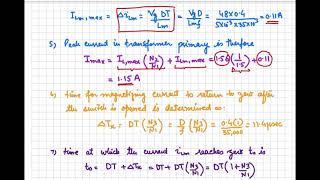 I Lm,max = ΔiLm = Vg DT / Lm = Vg D / Lm f = 48 × 0.4 / 5×10⁻³ × 35×10³ = 0.11A
5) Peak current in transformer primary is therefore
Imax = I1,max (N2/N1) + ILm,max = 1.56 (1/1.5) + 0.11
= 1.15 A
6) time for magnetizing current to return to zero after
the switch is opened is determined as:
ΔTx = DT (N3/N1) = D/f (N3/N1) = 0.4(1)/35,000 = 11.4 μsec
7) time at which the current iLm reaches zero to is
to = DT + ΔTx = DT + DT (N3/N1) = DT (1 + N3/N1)